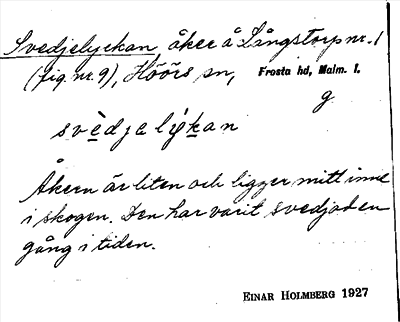 Svedjelyckan, åker å Långstorp nr. 1
(fig. nr. 9), Höörs sn, Frosta hd, Malm. l.
g.
svèdjalýkan
Åkern är liten och ligger mitt inne
i skogen. Den har varit svedjad en
gång i tiden.
EINAR HOLMBERG 1927